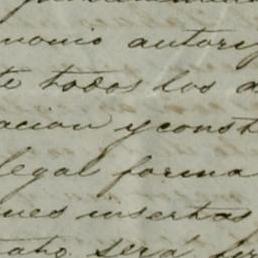 monio autori
te todos los a
acion y const
legal forma
nes insertas
será